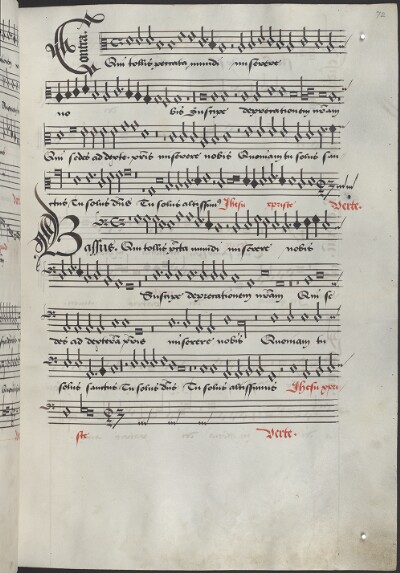 72
Contra.
Qui tollis peccata mundi miserere
no bis Suscipe deprecationem nr̄am
Qui sedes ad dexte. pr̄is miserere nobis Quoniam tu solus san
ctus Tu solus dn̄s Tu solus altissimꝰ Jhesu xpriste Verte.
Bassus. Qui tollis pctā mundi miserere nobis
Suscipe deprecationem nr̄am Qui se
des ad dexterā pr̄is miserere nobis Quoniam tu
solus sanctus Tu solus dn̄s Tu solus altissimus Jhesu xpri
ste Verte.